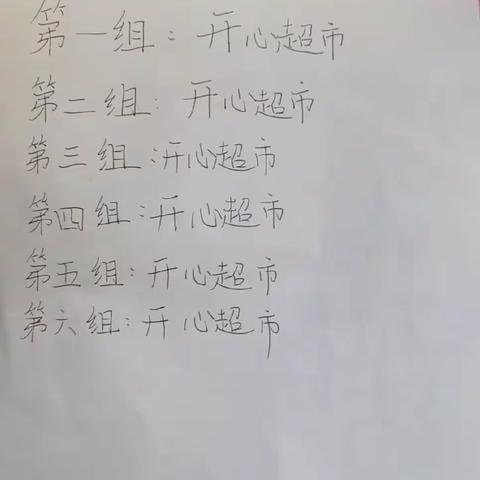 第一组：开心超市
第二组：开心超市
第三组：开心超市
第四组：开心超市
第五组：开心超市
第六组：开心超市